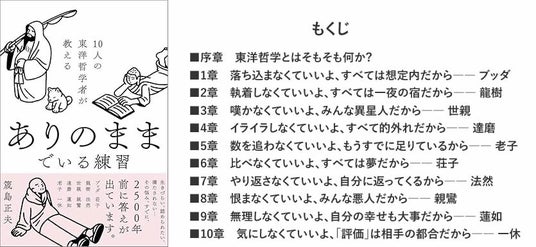 10人の
東洋哲学者が
教える
ありのまま
でいる練習
2500年
前に答えが
出ています。
ブッダ 荘子
龍樹 法然
世親 親鸞
達磨 蓮如
老子 一休
筬島正夫
もくじ
■序章 東洋哲学とはそもそも何か?
■1章 落ち込まなくていいよ、すべては想定内だから―― ブッダ
■2章 執着しなくていいよ、すべては一夜の宿だから―― 龍樹
■3章 嘆かなくていいよ、みんな異星人だから―― 世親
■4章 イライラしなくていいよ、すべて的外れだから―― 達磨
■5章 数を追わなくていいよ、もうすでに足りているから―― 老子
■6章 比べなくていいよ、すべては夢だから―― 荘子
■7章 やり返さなくていいよ、自分に返ってくるから―― 法然
■8章 恨まなくていいよ、みんな悪人だから―― 親鸞
■9章 無理しなくていいよ、自分の幸せも大事だから―― 蓮如
■10章 気にしなくていいよ、「評価」は相手の都合だから―― 一休